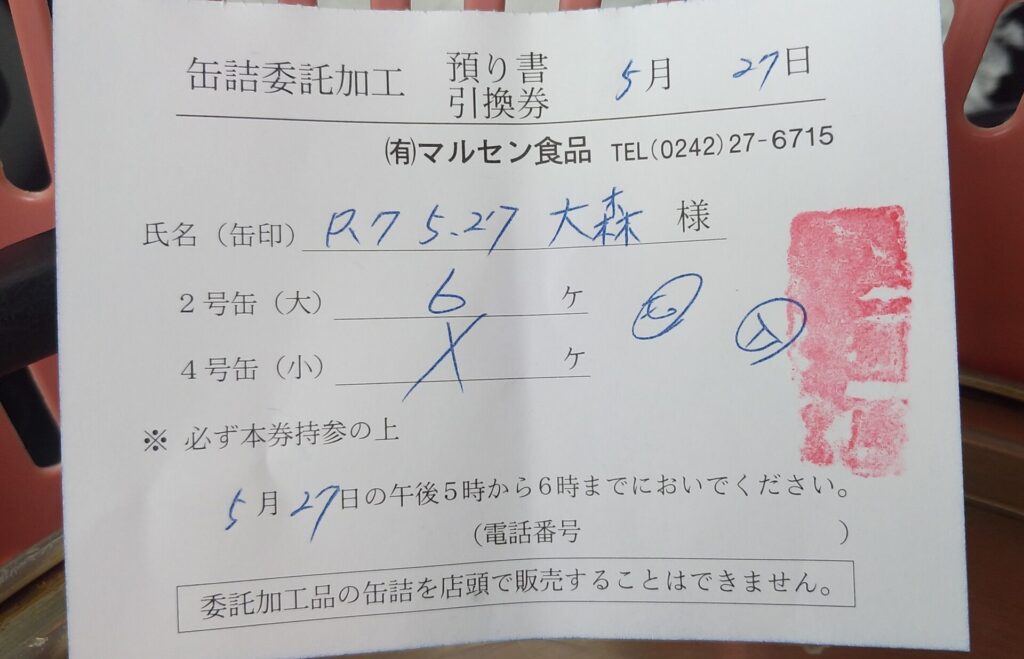 缶詰委託加工 預り書 引換券 5月 27日
㈲マルセン食品 TEL(0242)27-6715
氏名（缶印） R.7 5.27 大森 様
2号缶（大） 6 ケ
4号缶（小） X ケ
※ 必ず本券持参の上
5月27日の午後5時から6時までにおいでください。
(電話番号 )
委託加工品の缶詰を店頭で販売することはできません。